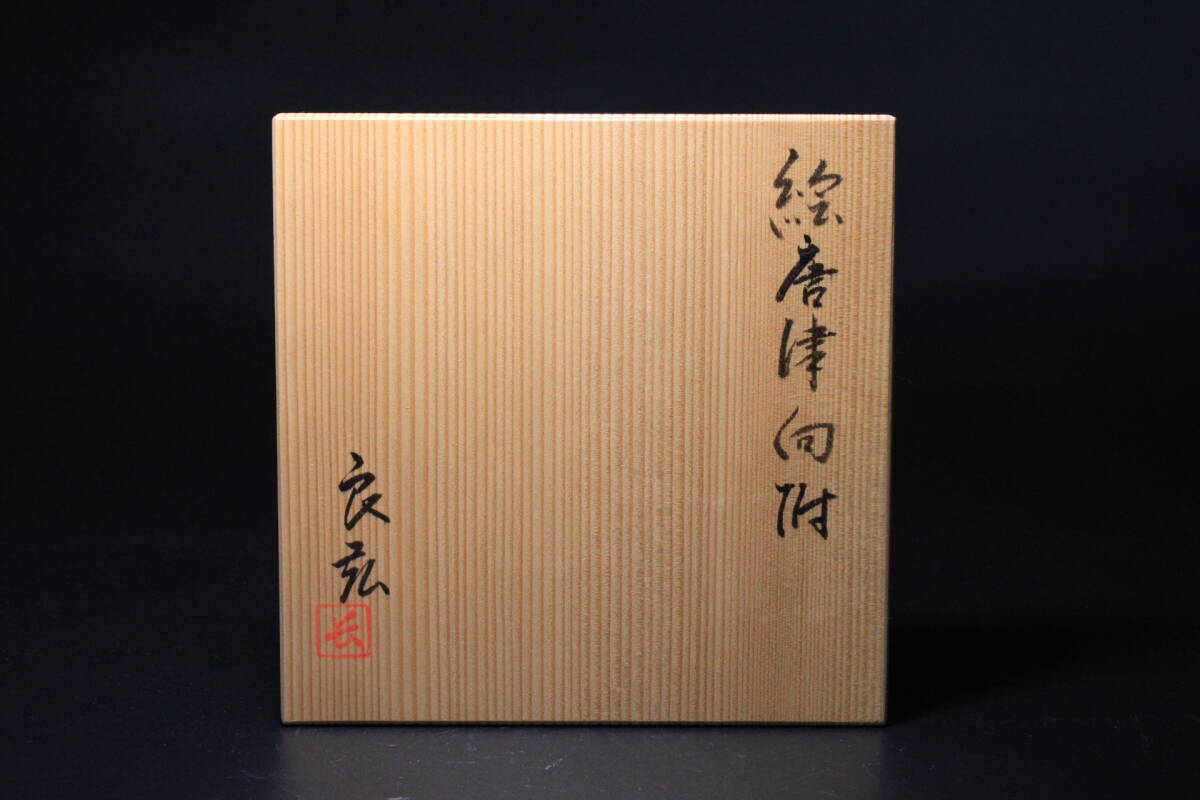 絵唐津向附
良弘